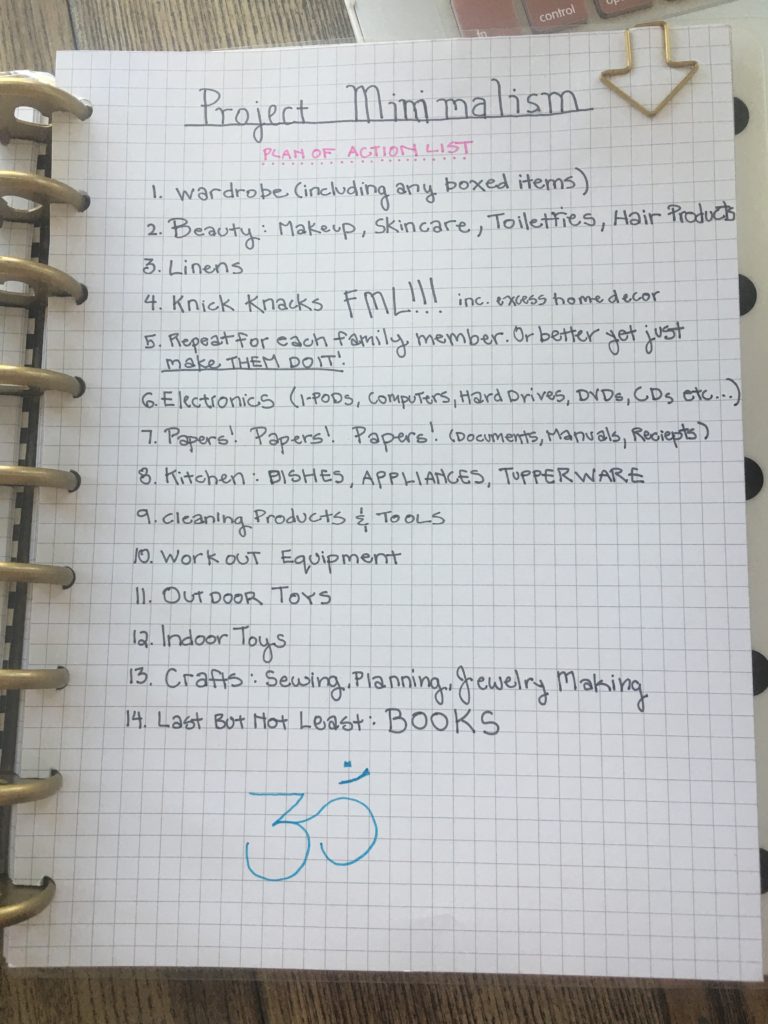 control
Project Minimalism
PLAN OF ACTION LIST
1. Wardrobe (including any boxed items)
2. Beauty: Makeup, Skincare, Toiletties, Hair Products
3. Linens
4. Knick Knacks FML!!! inc. excess home decor
5. Repeat for each family member. Or better yet just
make THEM DO IT!
6. Electronics (I-PODS, Computers, Hard Drives, DVDs, CDs etc...)
7. Papers! Papers! Papers! (Documents, Manuals, Reciepts)
8. Kitchen: DISHES, APPLIANCES, TUPPERWARE
9. Cleaning Products & TOOLS
10. Work out Equipment
11. OUTDOOR TOYS
12. Indoor Toys
13. Crafts: Sewing, Planning, Jewelry Making
14. Last But Not Least: BOOKS
ॐ